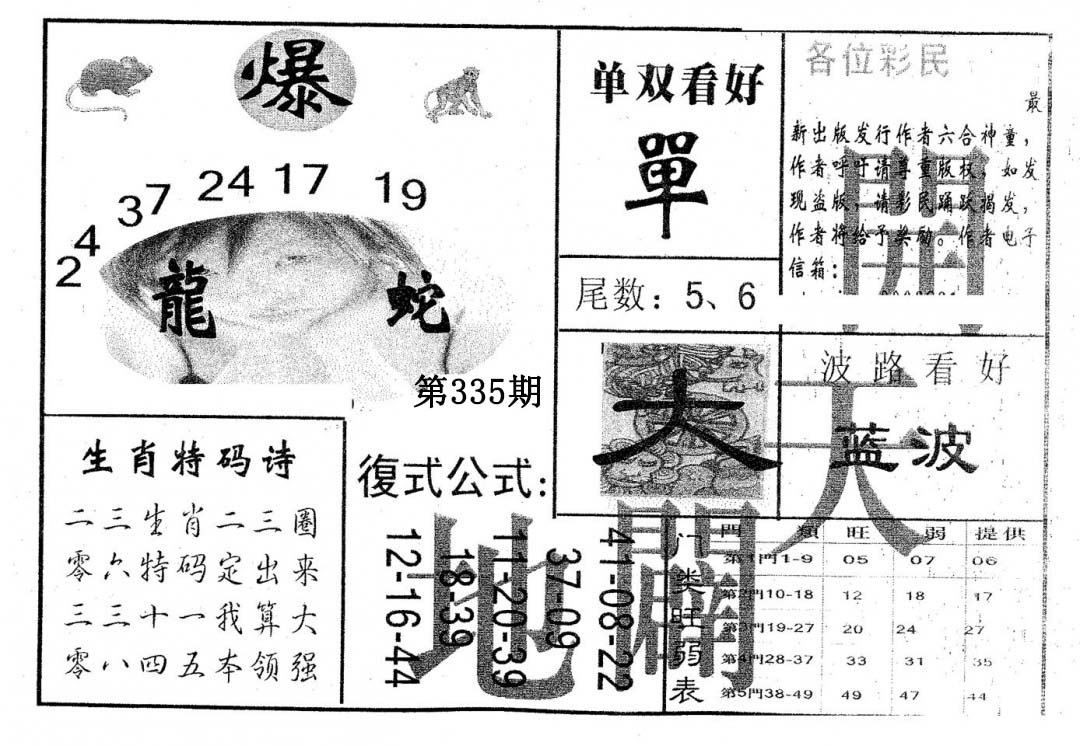 爆
24 17 19
37
4
2
龍 蛇
第335期
生肖特码诗
二三生肖二三圈
零六特码定出来
三三十一我算大
零八四五本领强
单双看好
單
尾数：5、6
各位彩民
最
新出版发行作者六合神童，
作者呼吁请尊重版权，如发
现盗版，请彩民踊跃揭发，
作者将给予奖励。作者电子
信箱：
大
波路看好
蓝波
開天
地闢
復式公式:
41-08-22
37-09
11-20-39
18-39
12-16-44
门类旺弱表
門類 旺 弱 提供
第1門1-9 05 07 06
第2門10-18 12 18 17
第3門19-27 20 24 27
第4門28-37 33 31 35
第5門38-49 49 47 44